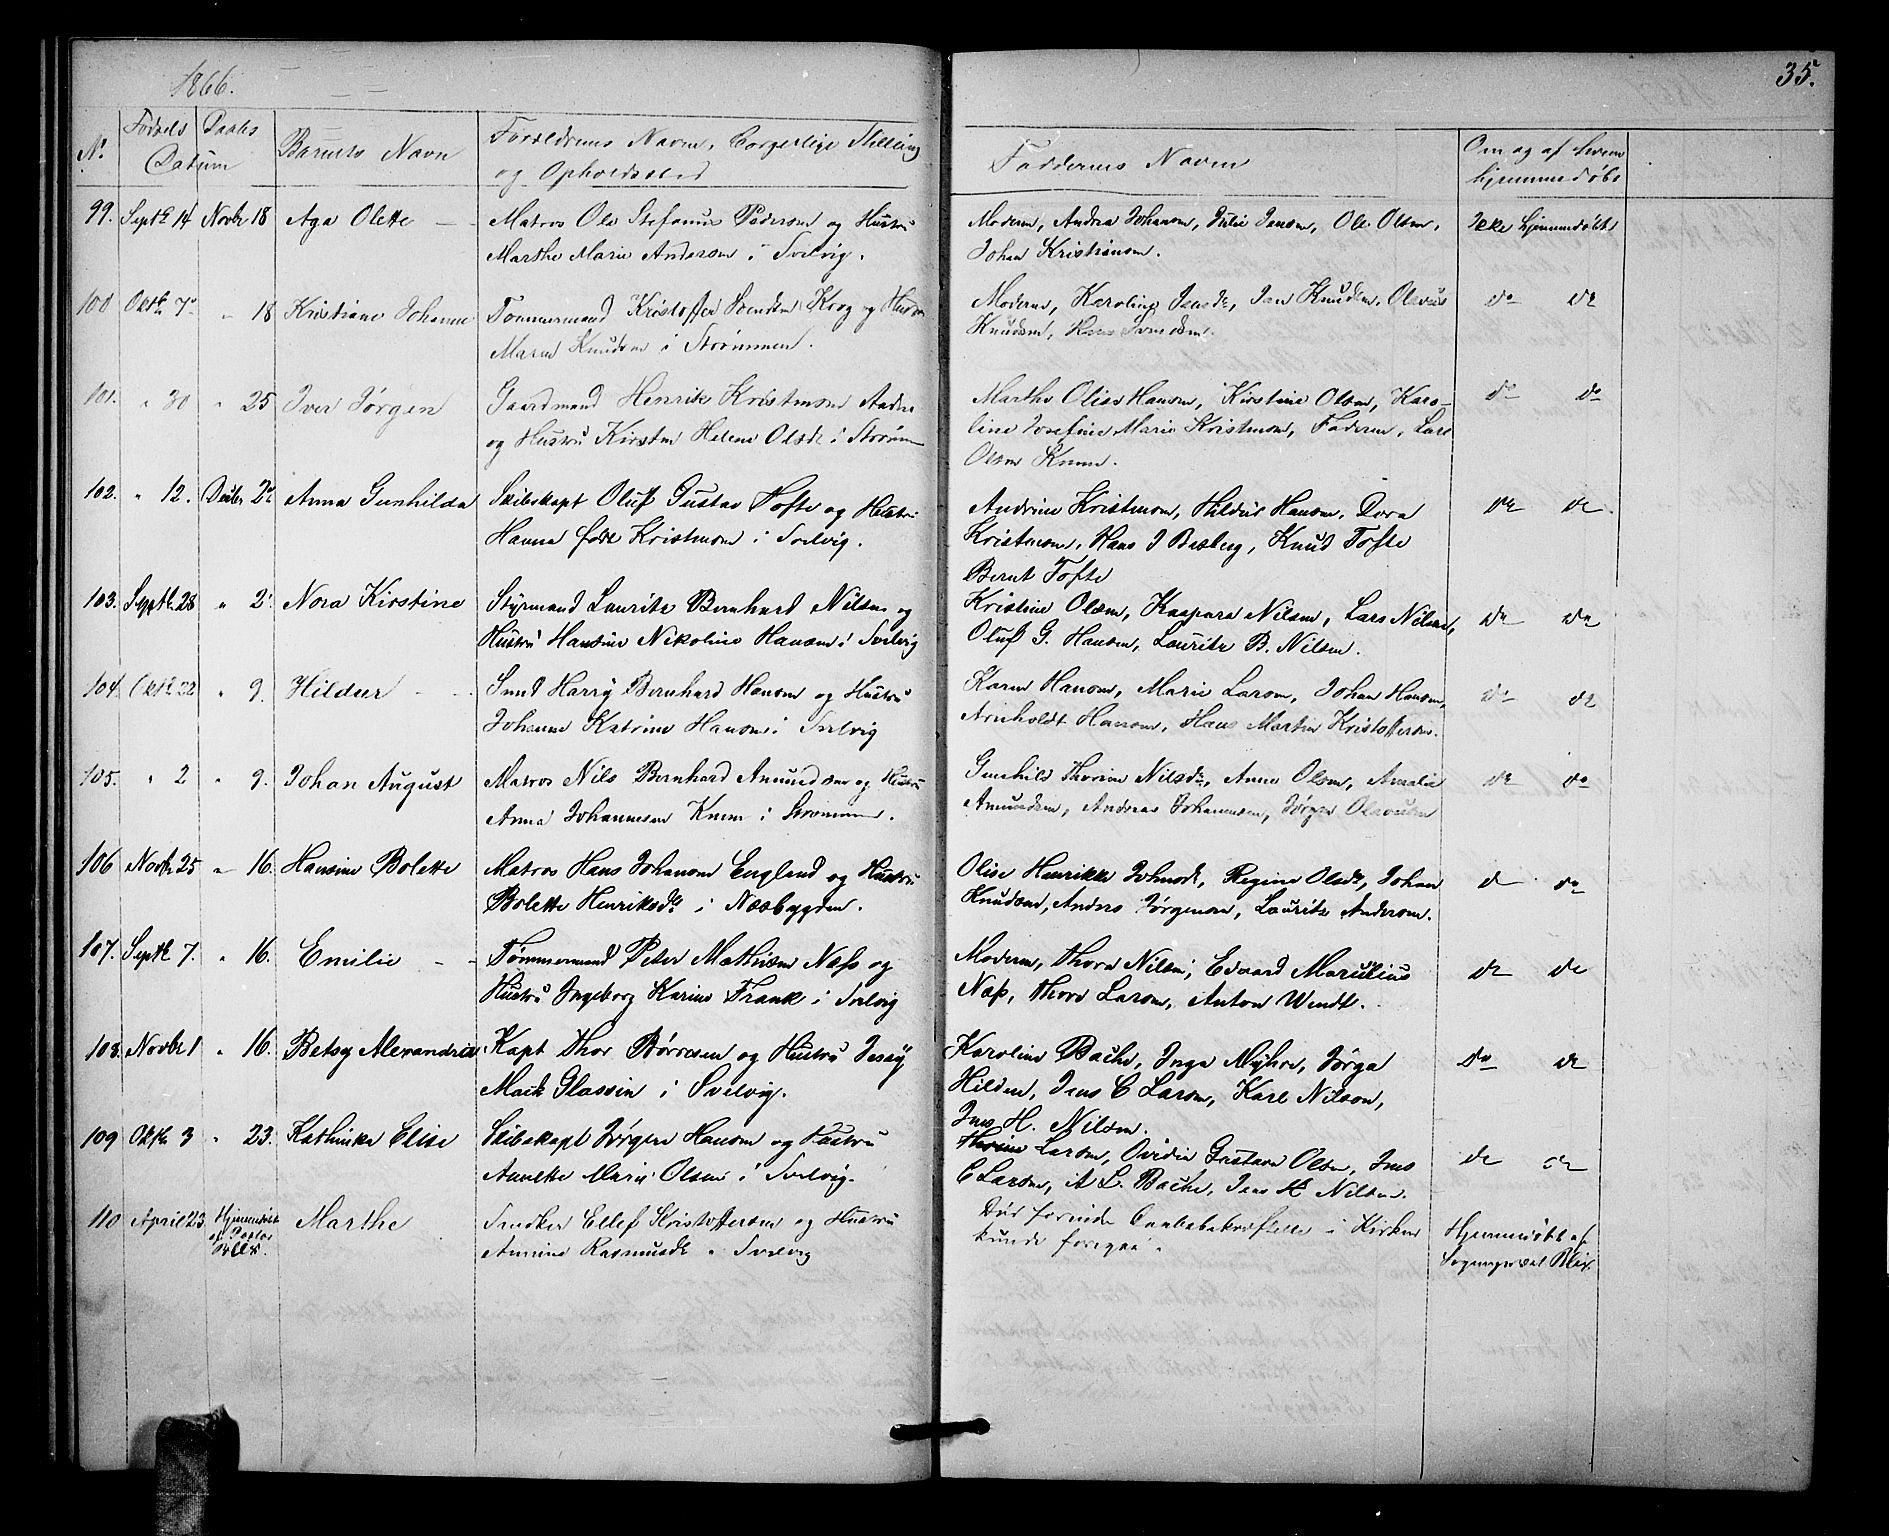 1866.
35.
No. Fødsels Daabs Datum Barnets Navn Forældrenes Navn, borgerlige Stilling og Opholdssted
Faddernes Navne
Om og af hvem hjemmedøbt
99. Septbr 14 Novbr 18 Aga Olette Matros Ole Stefanus Pedersen og Hustru
Marthe Marie Andersen i Svelvig.
Moderen, Andrea Johansen, Julie Jensen, Ole Olsen,
Johan Kristiansen.
Ikke hjemmedøbt
100 Oktbr 7 " 18 Kristiane Johanne Tømmermand Kristoffer Svendsen Krog og Hustru
Maren Knudsen i Strømmen.
Moderen, Karoline Jensdr, Jan Knudsen, Olavus
Knudsen, Hans Svendsen.
do do
101. " 30 " 25 Iver Jørgen Gaardmand Henrik Kristensen
og Hustru Kirsten Helene Olsdr i Strømm
Marthe Olise Hansen, Kirstine Olsen, Karo-
line Josefine Marie Kristensen, Faderen, Lars
Olsen Knem.
do do
102. " 12. Decbr 2 Anna Gunhilda Skibskapt Oluf Gustav Tofte og Hustru
Hanna født Kristensen i Svelvig.
Andrine Kristensen, Hildur Hansen, Dora
Kristensen, Hans J Braberg, Knud Tofte
Bernt Tofte
do do
103. Septbr 28 " 2 Nora Kirstine Styrmand Lauritz Bernhard Nilsen og
Hustru Hansine Nikoline Hansen i Svelvig
Kristine Olsen, Kaspara Nilsen, Lars Nilsen,
Oluf G. Hansen, Lauritz B. Nilsen.
do do
104. Oktbr 22 " 9. Hildur Smed Harry Bernhard Hansen og Hustru
Johanne Katrine Hansen i Svelvig
Karen Hansen, Marie Larsen, Johan Hansen,
Arnholdt Hansen, Hans Martin Kristoffersen.
do do
105. " 2 " 9. Johan August Matros Nils Bernhard Amundsen og Hustru
Anna Johannesen Knem i Strømmen.
Gunhild Thorine Nilsdr, Anne Olsen, Amalia
Amundsen, Andreas Johannesen, Jørgen Olavesen
do do
106 Novbr 25 " 16. Hansine Bolette Matros Hans Johansen England og Hustru
Bolette Henriksdr i Næsbygden.
Olise Henrikke Johnsdr, Regine Olsdr, Johan
Knudsen, Anders Jørgensen, Lauritz Andersen.
do do
107. Septbr 7. " 16. Emilie Tømmermand Peter Mathisen Næss og
Hustru Ingeborg Karine Frank i Svelvig
Moderen, Thora Nilsen, Edvard Marelius
Næss, Thorv Larsen, Anton Wendt.
do do
108. Novbr 1 " 16. Betsy Alexandria Kapt Thor Børresen og Hustru Jessy
Mack Glassin i Svelvig.
Karoline Bache, Inga Myhre, Jørga
Hilden, Jens C Larsen, Karl Nilsen,
Jens H. Nilsen.
do do
109 Oktbr 3 " 23. Kathinka Elise Skibskapt Jørgen Hansen og Hustru
Annette Marie Olsen i Svelvig.
Thorine Larsen, Ovidia Gustava Olsen, Jens
C Larsen, A L. Bache, Jens H Nilsen.
do do
110 April 23. Hjemmedøbt af Pastor Blix. Marthe Snedker Ellef Kristoffersen og Hustru
Annine Rasmusdr i Svelvig
Død forinden Daabsbekræftelse i Kirken
kunde foregaa.
Hjemmedøbt af
Sogneprest Blix.